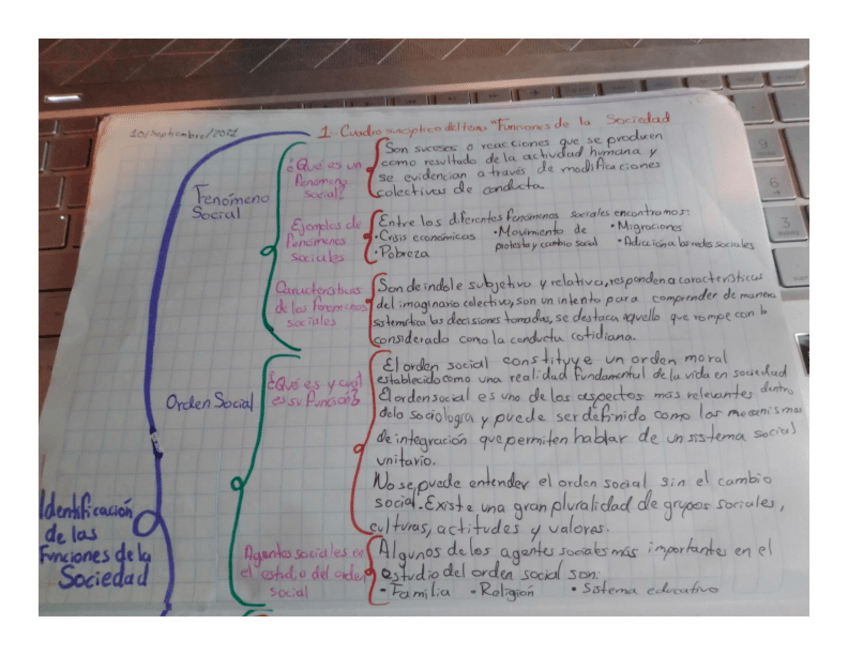 10/Septiembre/2021
1.- Cuadro sinóptico del tema "Funciones de la Sociedad
Fenómeno
Social
¿Qué es un
fenómeno
social?
Son sucesos o reacciones que se producen
como resultado de la actividad humana y
se evidencian a través de modificaciones
colectivas de conducta.
Ejemplos de
fenómenos
sociales
Entre los diferentes fenómenos sociales encontramos:
•Crisis económicas •Movimiento de protesta y cambio social •Migraciones
•Pobreza •Adicción a las redes sociales
Características
de los fenómenos
sociales
Son de índole subjetiva y relativa, responden a características
del imaginario colectivo, son un intento para comprender de manera
sistemática las decisiones tomadas, se destaca aquello que rompe con lo
considerado como la conducta cotidiana.
Orden Social
¿Qué es y cuál
es su función?
El orden social constituye un orden moral
establecido como una realidad fundamental de la vida en sociedad
El orden social es uno de los aspectos más relevantes dentro
de la sociología y puede ser definido como los mecanismos
de integración que permiten hablar de un sistema social
unitario.
No se puede entender el orden social sin el cambio
social. Existe una gran pluralidad de grupos sociales,
culturas, actitudes y valores.
Identificación
de las
Funciones de la
Sociedad
Agentes sociales en
el estudio del orden
social
Algunos de los agentes sociales más importantes en el
estudio del orden social son:
•Familia •Religión •Sistema educativo